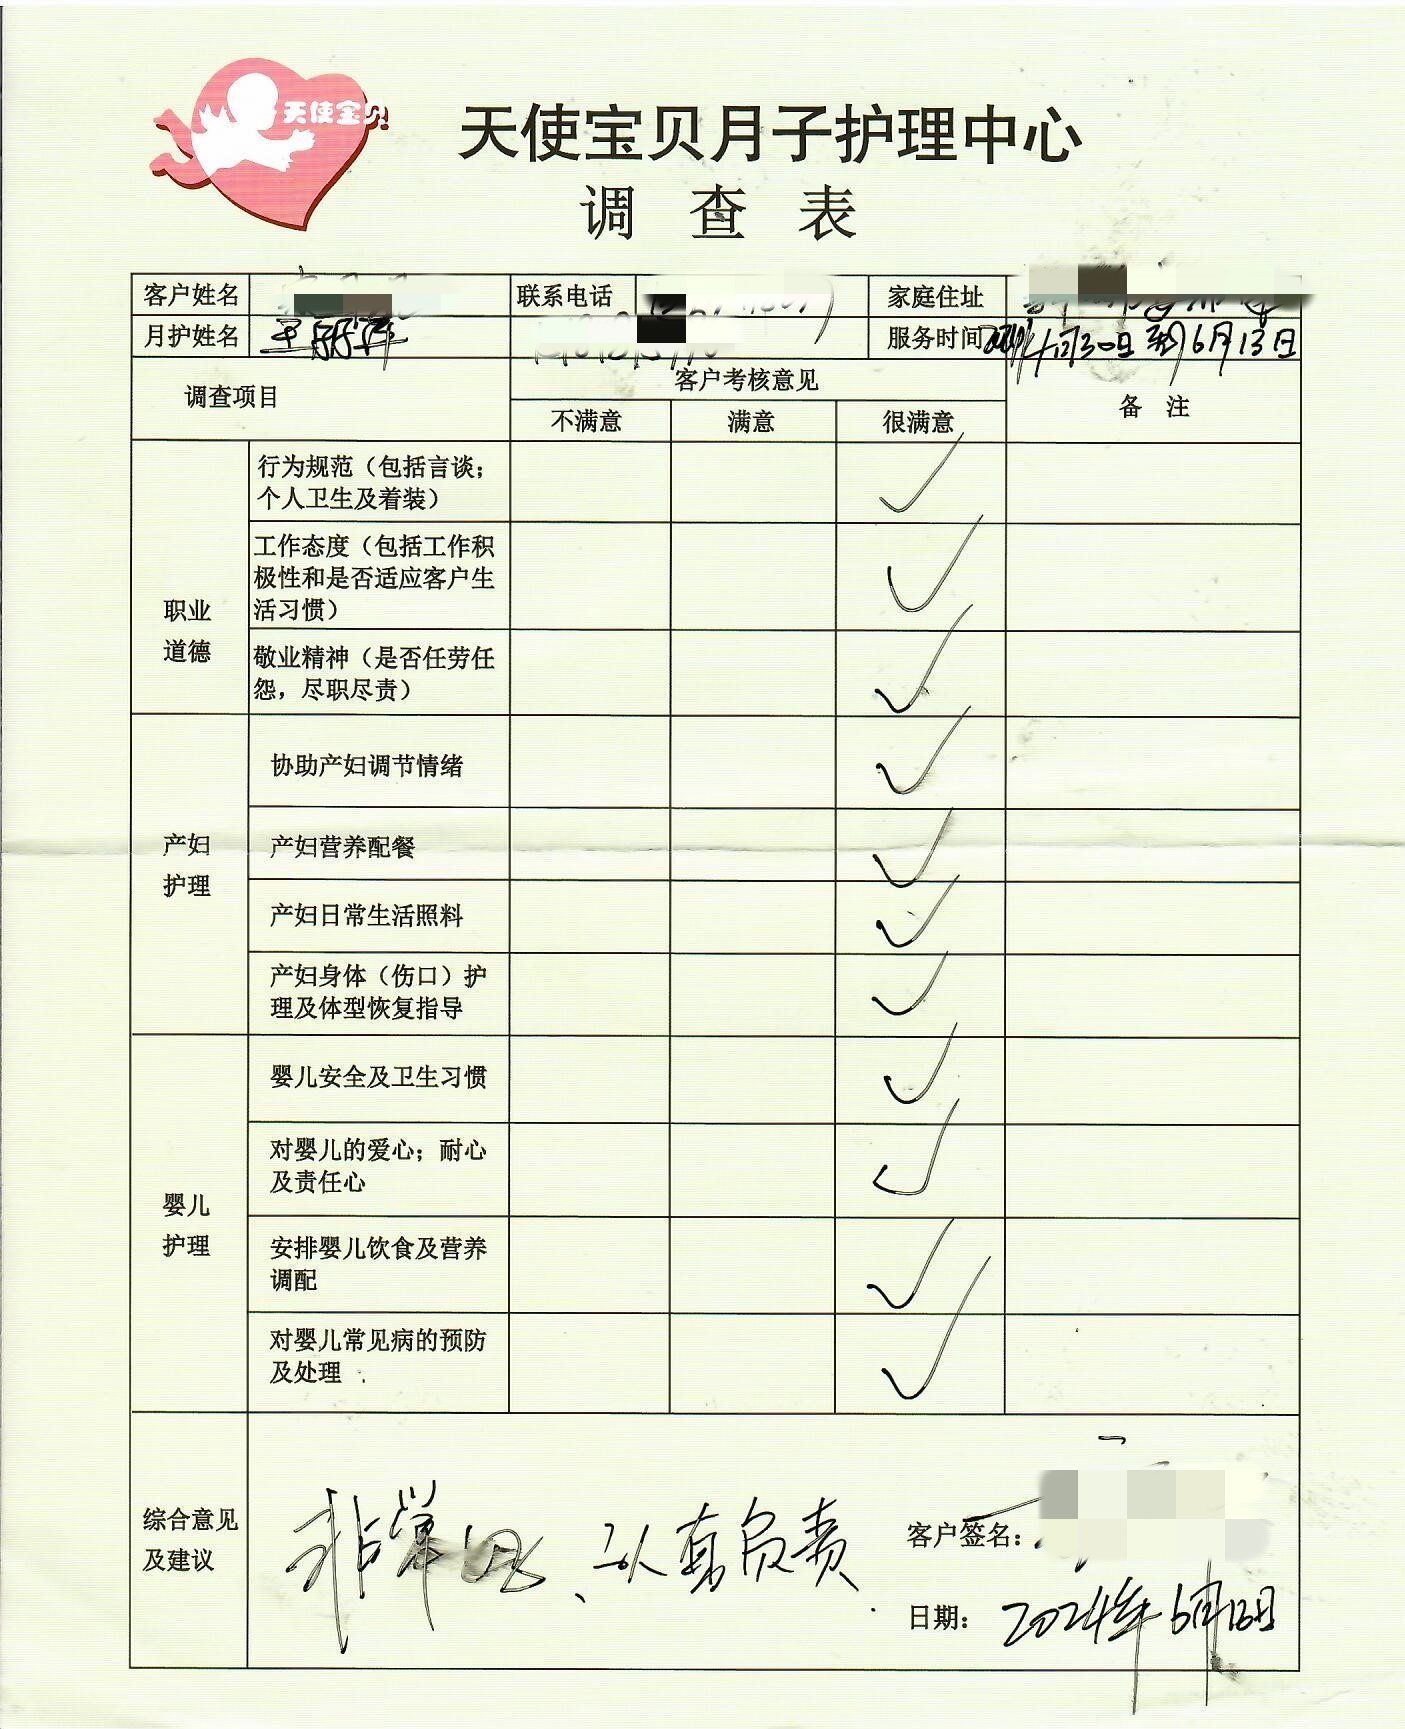 天使宝贝
天使宝贝月子护理中心
调 查 表
客户姓名 联系电话 家庭住址
月护姓名 王丽萍 服务时间 2024年4月30日到6月13日
调查项目 客户考核意见 备 注
不满意 满意 很满意
职业
道德
行为规范（包括言谈；
个人卫生及着装）
工作态度（包括工作积
极性和是否适应客户生
活习惯）
敬业精神（是否任劳任
怨，尽职尽责）
产妇
护理
协助产妇调节情绪
产妇营养配餐
产妇日常生活照料
产妇身体（伤口）护
理及体型恢复指导
婴儿
护理
婴儿安全及卫生习惯
对婴儿的爱心；耐心
及责任心
安排婴儿饮食及营养
调配
对婴儿常见病的预防
及处理
综合意见
及建议
非常 、认真负责
客户签名：
日期： 2024年6月13日